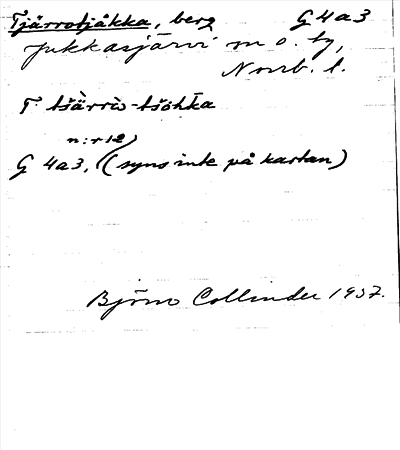 Tjärrotjåkka, berg G4a3
Jukkasjärvi sn o. tg,
Norrb. l.
T. tšärrò-tšåhka
n:r 12
G 4a3, (syns inte på kartan)
Björn Collinder 1937.